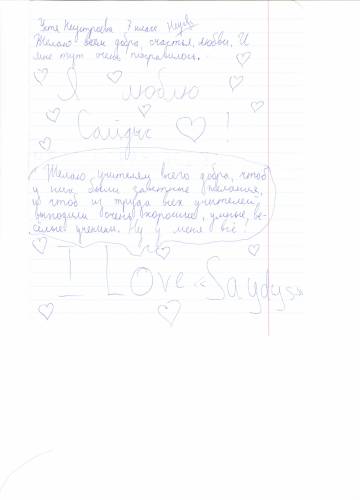 Катя 7 класс
Желаю всем добра, счастья, любви. И
мне тут очень понравилось.
Я люблю
Сайдыс !
Желаю учителям всего добра, чтоб
у них были заветные желания,
и чтоб из труда всех учителей
выходили очень хорошие, умные, ве-
сёлые ученики. Ну у меня всё!
I Love «Saydys»